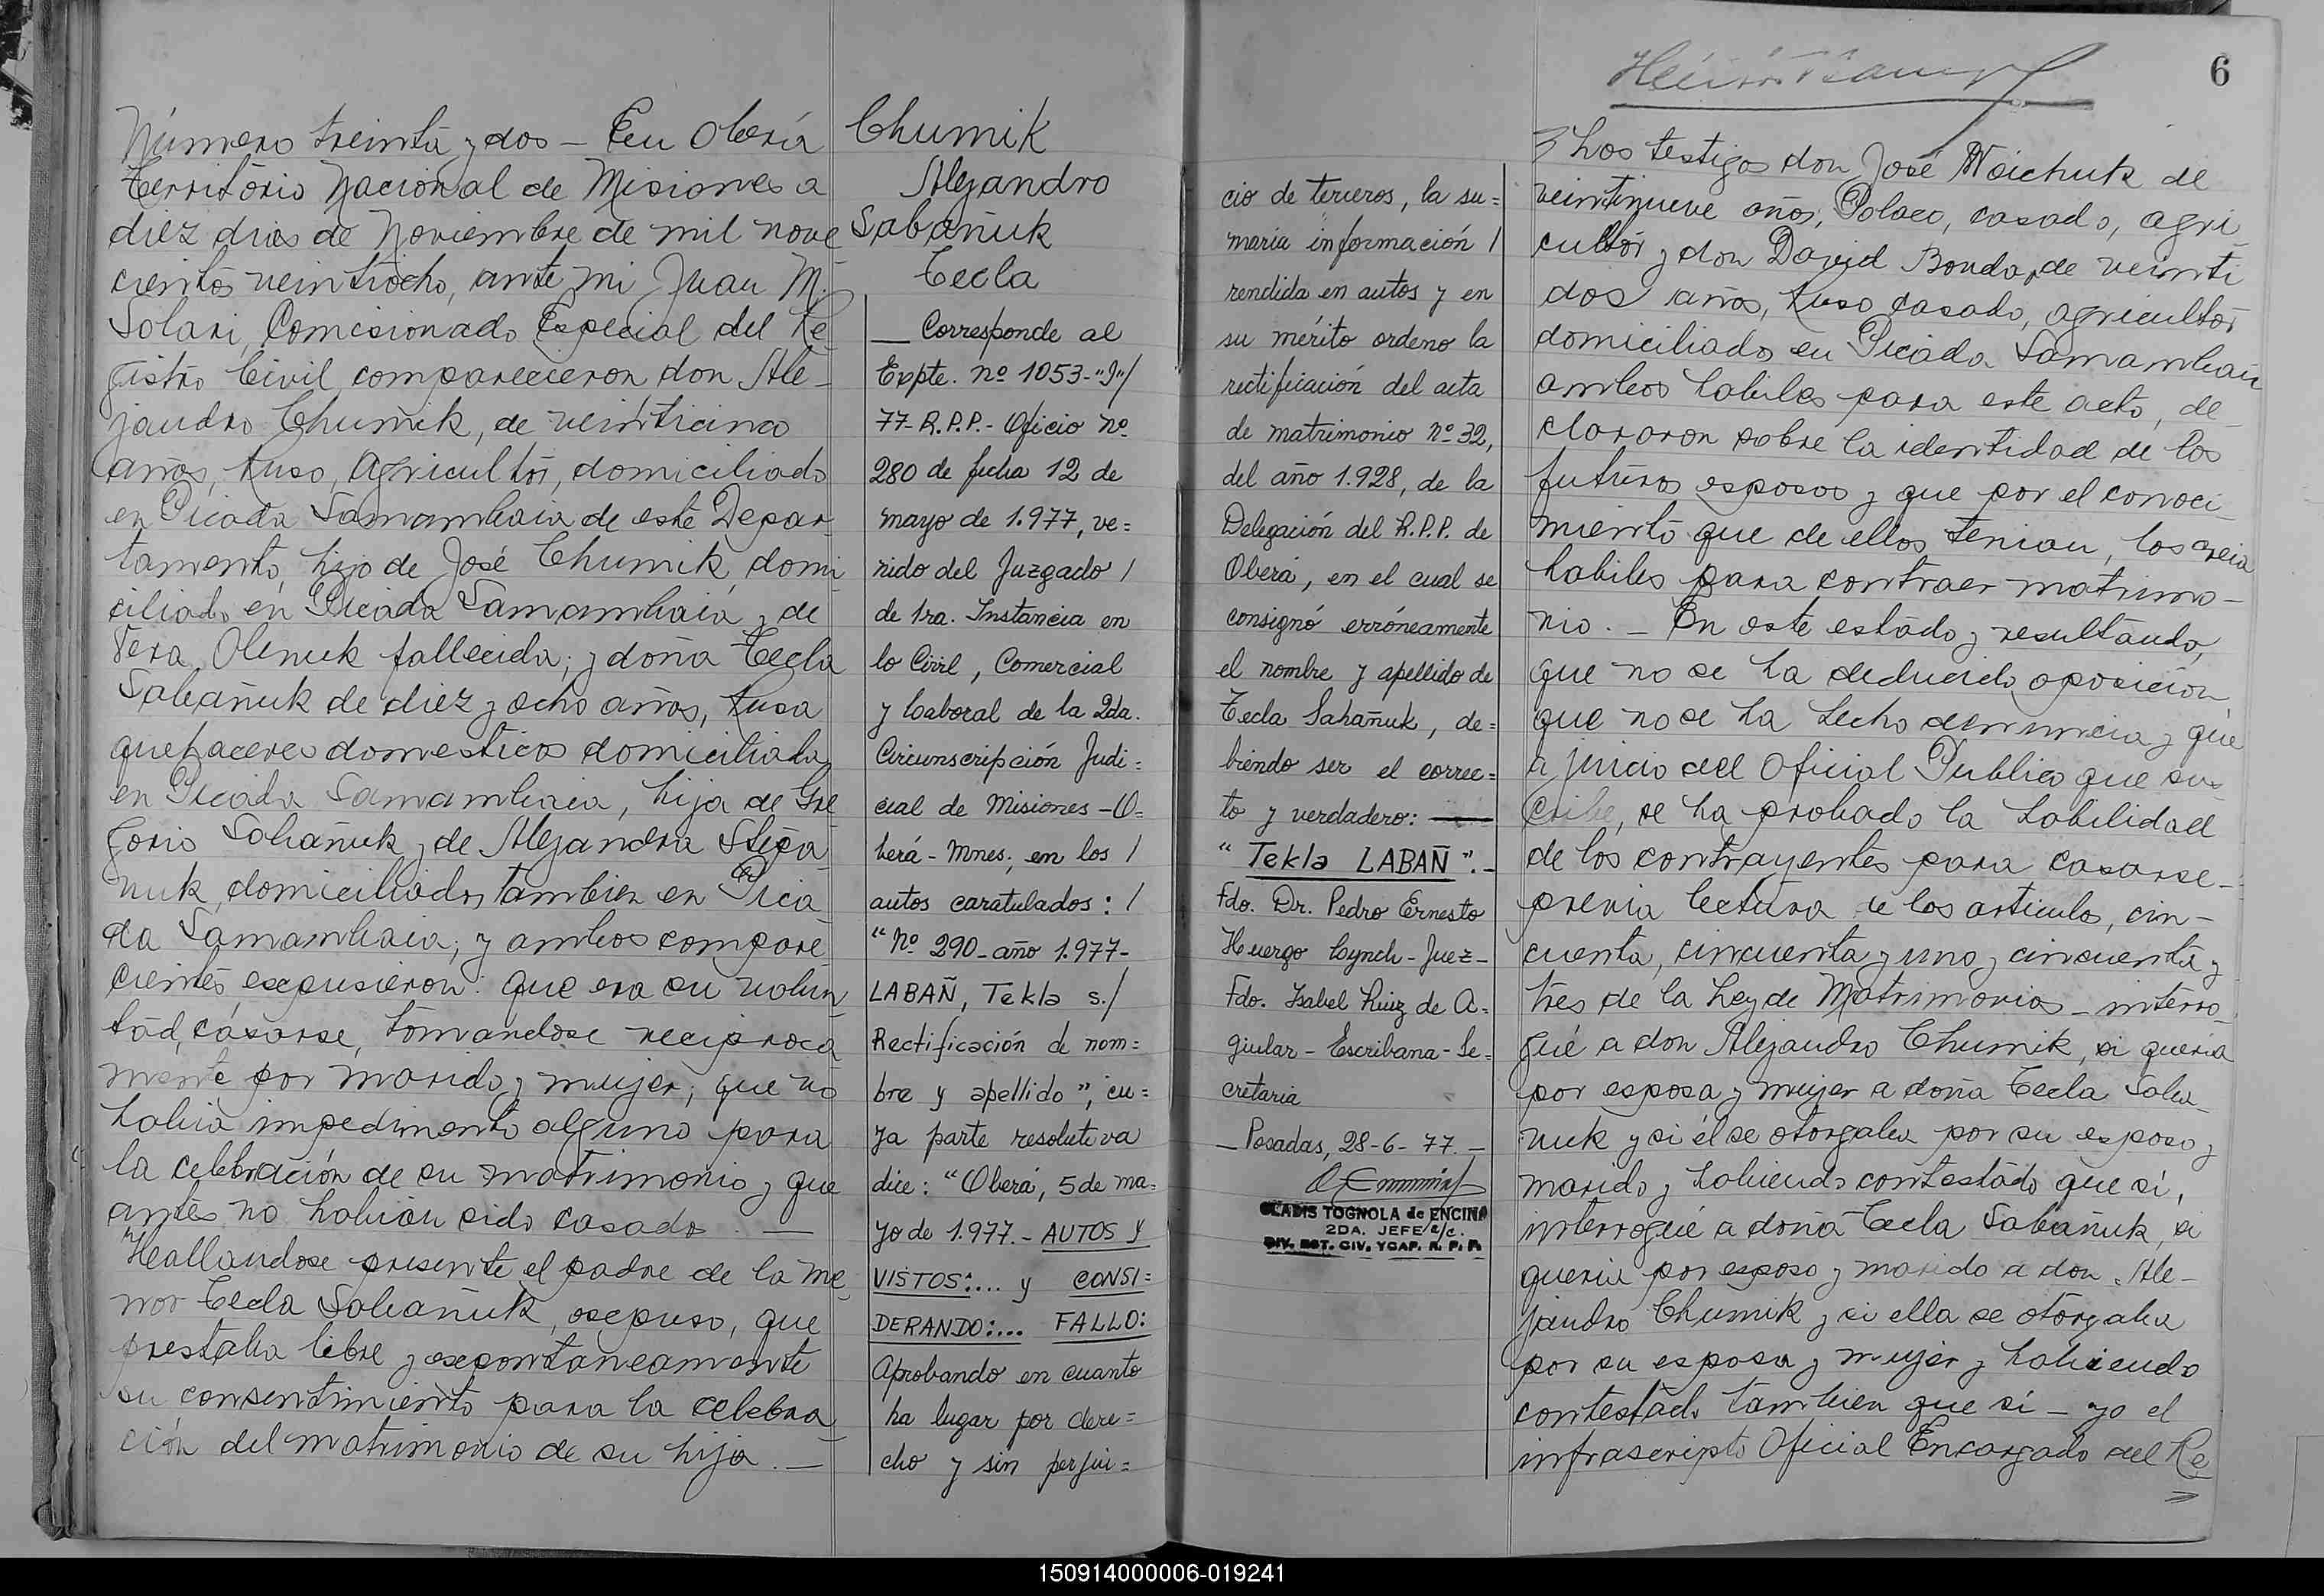 Número treinta y dos – En Oberá
Territorio Nacional de Misiones a
diez dias de Noviembre de mil nove
cientos veintiocho, ante mi Juan M.
Solari, Comisionado Especial del Re
gistro Civil comparecieron don Ale-
jandro Chumik, de veinticinco
años, ruso, agricultor, domiciliado
en Picada Samambaia de este Depar
tamento, hijo de José Chumik domi
ciliado en Picada Samambaia y de
Vera Olenuk fallecida; y doña Tecla
Sabañuk de diez y ocho años, rusa
quehaceres domesticos domiciliada
en Picada Samambaia, hija de Gre
gorio Sabañuk y de Alejandra Stepa
nuk, domiciliados tambien en Pica
da Samambaia; y ambos compare
cientes expusieron: que era su volun
tad, casarse, tomandose reciproca
mente por marido y mujer; que no
habia impedimento alguno para
la celebración de su matrimonio y que
antes no habian sido casado. —
Heallandose presente el padre de la me
nor Tecla Sabañuk, expuso, que
prestaba libre y expontaneamente
su consentimiento para la celebra
ción del matrimonio de su hija. —
Chumik
Alejandro
Sabañuk
Tecla
— Corresponde al
Expte. nº 1053-"J"/
77-R.P.P.- Oficio nº
280 de fecha 12 de
mayo de 1.977, ve=
nido del Juzgado /
de 1ra. Instancia en
lo Civil, Comercial
y Laboral de la 2da.
Circunscripción Judi=
cial de Misiones-O=
berá-Mnes; en los /
autos caratulados: /
"Nº 290-año 1.977-
LABAÑ, Tekla s./
Rectificación de nom=
bre y apellido", cu=
ya parte resolutiva
dice: "Oberá, 5 de ma=
yo de 1.977.- AUTOS Y
VISTOS:... y CONSI=
DERANDO:... FALLO:
Aprobando en cuanto
ha lugar por dere=
cho y sin perjui=
cio de terceros, la su=
maria información /
rendida en autos y en
su mérito ordeno la
rectificación del acta
de matrimonio nº 32,
del año 1.928, de la
Delegación del R.P.P. de
Oberá, en el cual se
consignó erróneamente
el nombre y apellido de
Tecla Sabañuk, de=
biendo ser el correc=
to y verdadero: —
"Tekla LABAÑ".-
Fdo. Dr. Pedro Ernesto
Huergo Lynch-Juez-
Fdo. Isabel Ruiz de A=
guilar-Escribana-Se=
cretaria
— Posadas, 28-6-77.—
GLADIS TOGNOLA de ENCINA
2DA. JEFE a/c.
DIV. EST. CIV. YCAP. R. P. P.
6
Los testigos don José Waichuk de
veintinueve años, Polaco, casado, agri
cultor y don David Bondar, de veinti
dos años, ruso casado, agricultor
domiciliados en Picada Samambaia
ambos habiles para este acto, de
clararon sobre la identidad de los
futuros esposos y que por el conoci
miento que de ellos tenian, los creia
habiles para contraer matrimo-
nio. – En este estado y resultando,
que no se ha deducido oposicion,
que no se ha hecho denuncia y que
a juicio del Oficial Publico que sus
cribe, se ha probado la habilidad
de los contrayentes para casarse-
previa lectura de los articulos, cin-
cuenta, cincuenta y uno y cincuenta y
tres de la Ley de Matrimonios – interro
gué a don Alejandro Chumik, si queria
por esposa y mujer a doña Tecla Saba
nuk y si él se otorgaba por su esposo y
marido y habiendo contestado que si,
interrogué a doña Tecla Sabañuk, si
queria por esposo y marido a don Ale-
jandro Chumik y si ella se otorgaba
por su esposa y mujer y habiendo
contestado tambien que si – yo el
infrascripto Oficial Encargado del Re
150914000006-019241